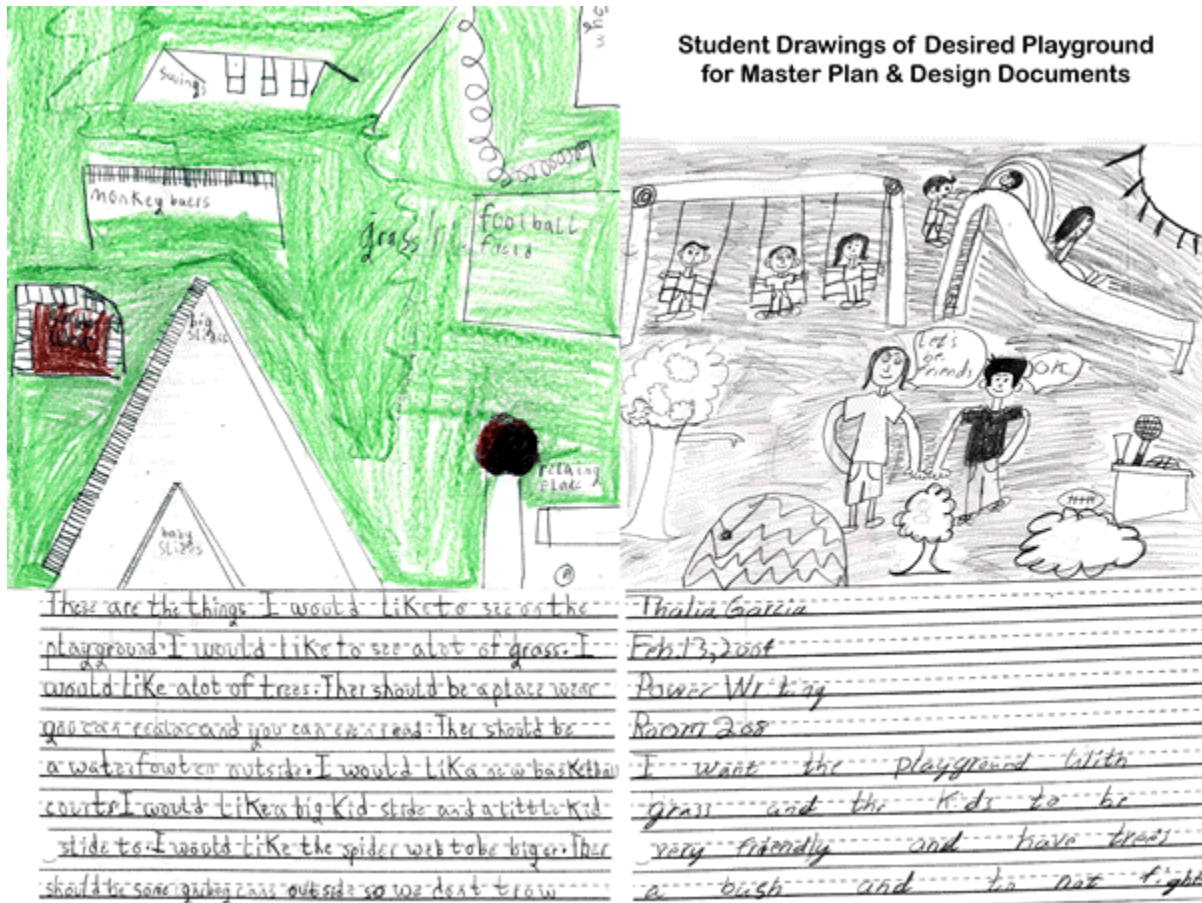 Student Drawings of Desired Playground
for Master Plan & Design Documents
swings
monkey baers
grass
football
field
big
slides
baby
slides
relaing
place
Let's
be
friends
OK
These are the things I would like to see on the
playground. I would like to see alot of grass. I
would like alot of trees. Ther should be a place wear
you can realax and you can even read. Ther should be
a waterfowten outside. I would lik a new basketball
courts I would like a big kid slide and a little kid
slide to. I would like the spider web to be biger. Ther
should be some garbeg cans outside so we dont trow
Thalia Garcia
Feb. 13, 2004
Power Writing
Room 208
I want the playground with
grass and the kids to be
very friendly and have trees
a bush and to not fight